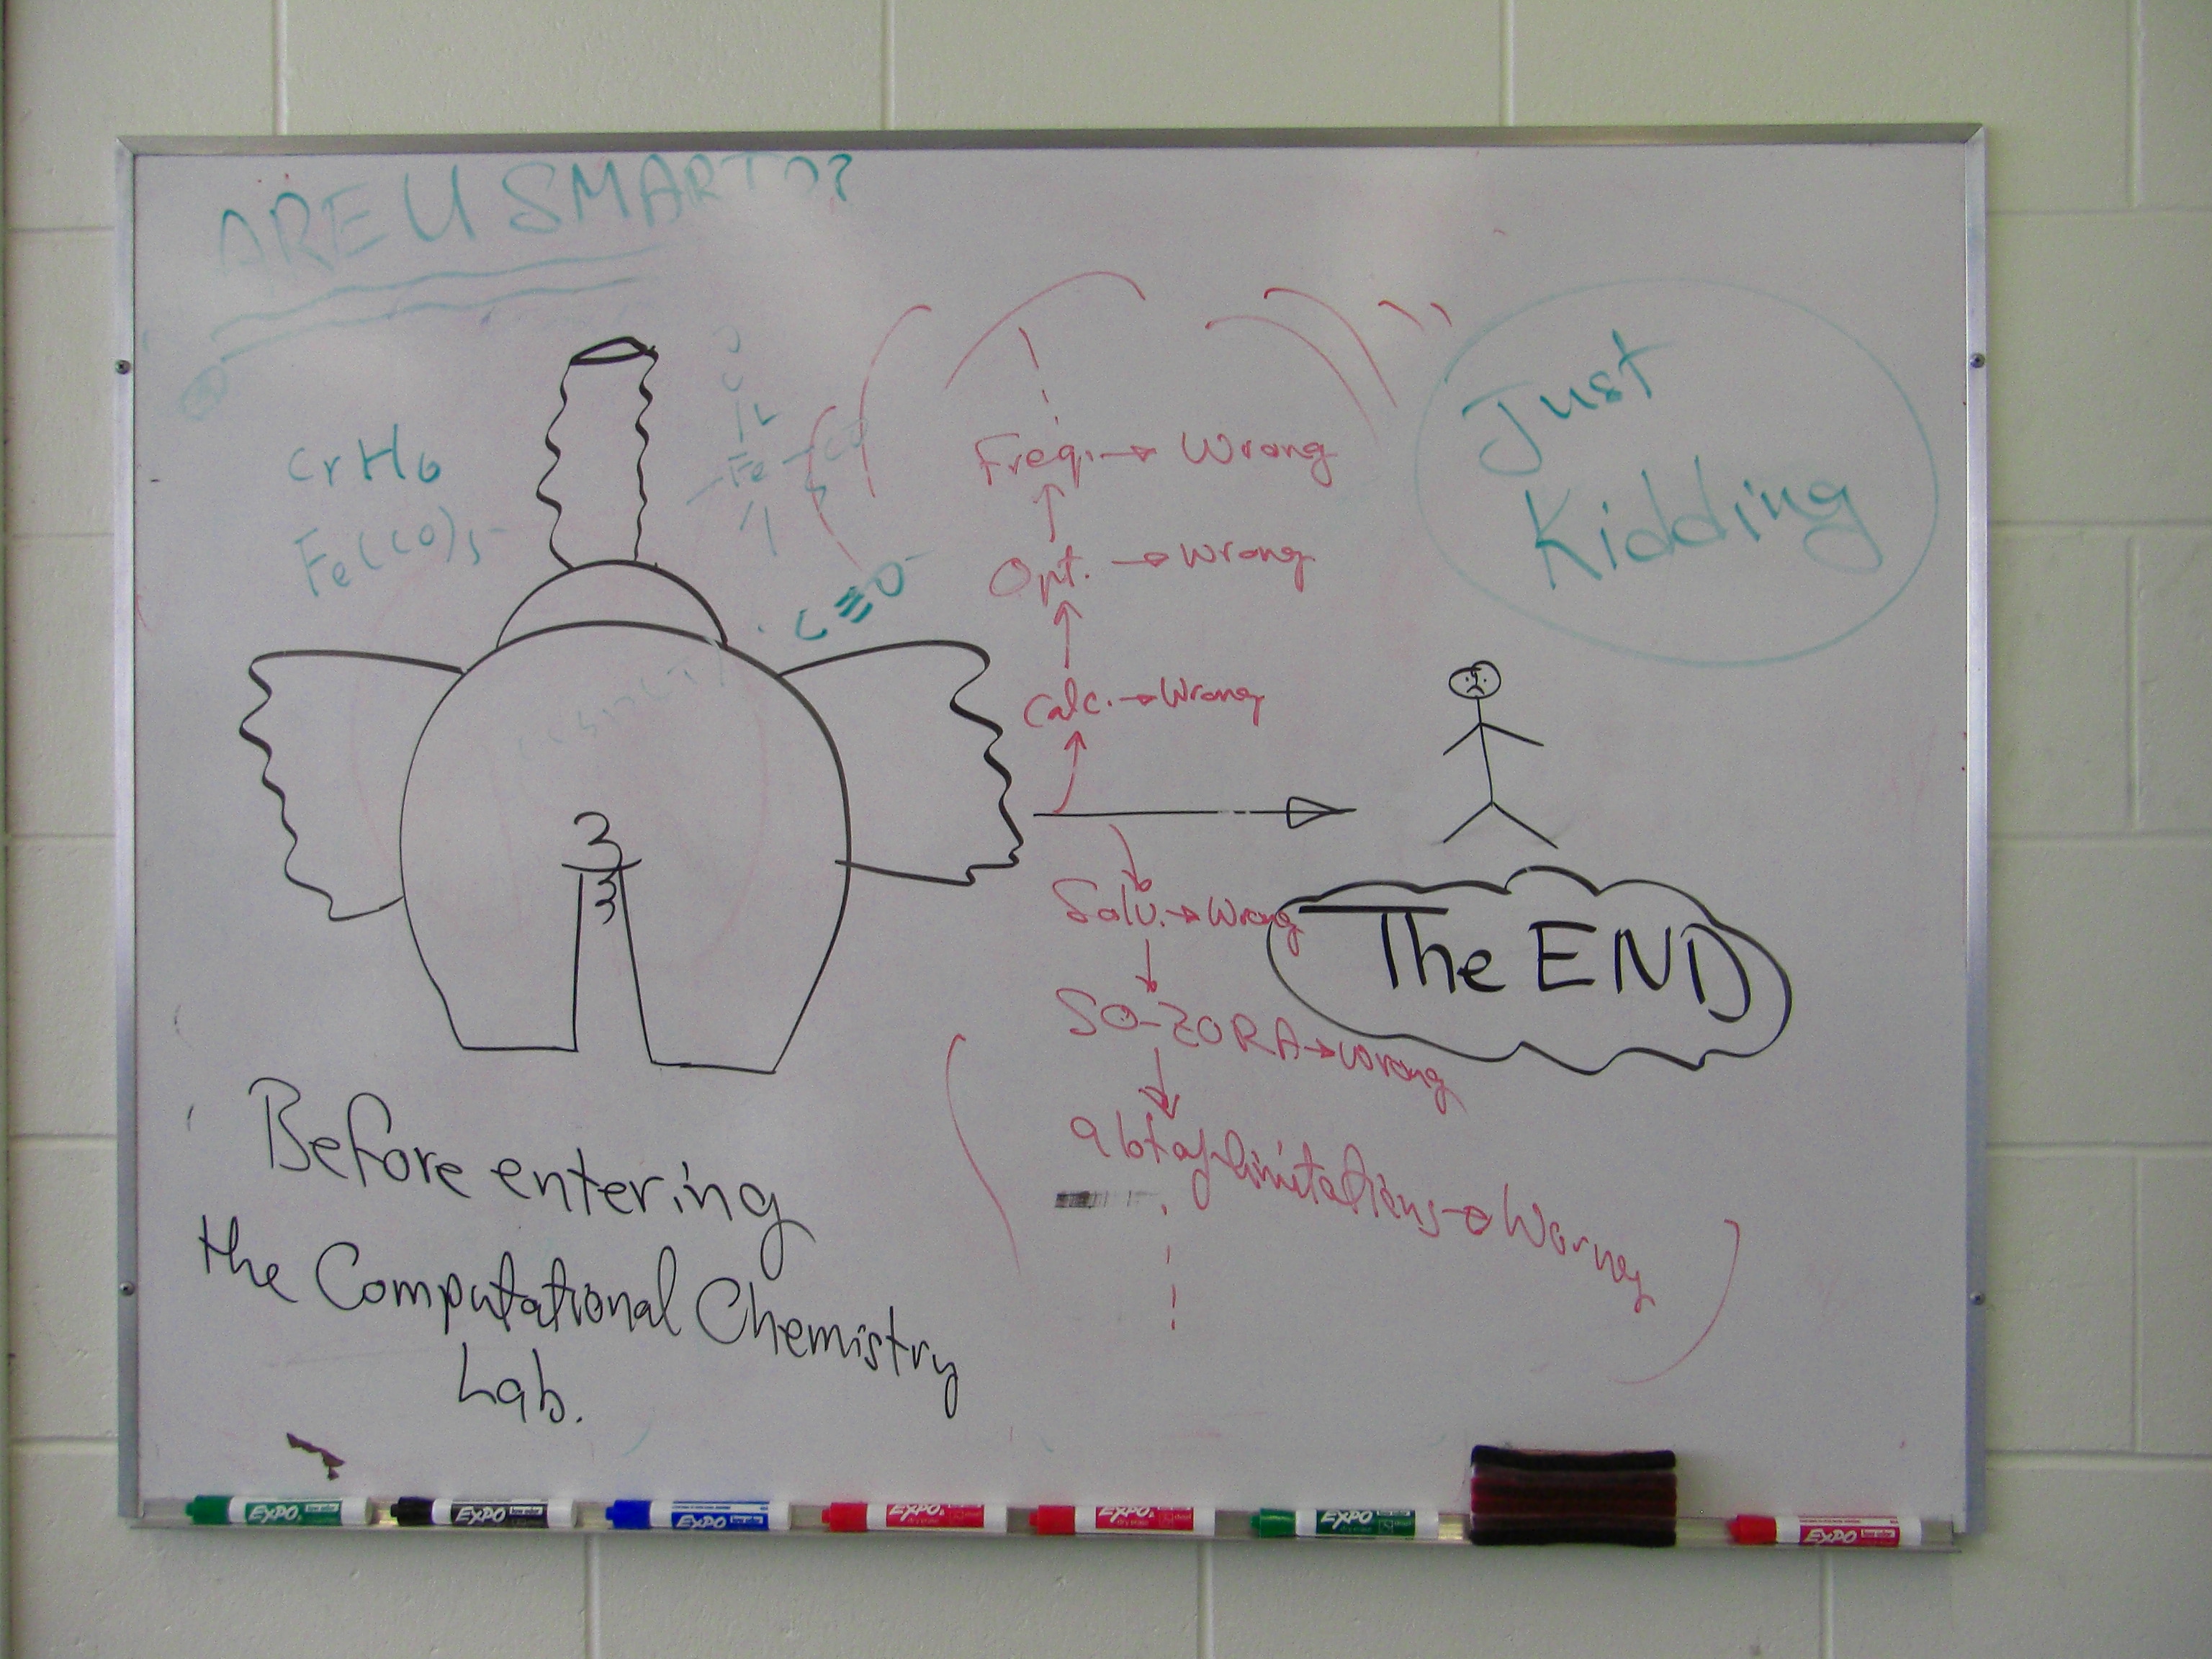 ARE U SMART??
CrH6
Fe(CO)5
Fe
C≡O
Freq. → Wrong
Opt. → Wrong
Calc. → Wrong
Just
Kidding
Solv. → Wrong
SO-ZORA → Wrong
limitations → Worng
The END
Before entering
the Computational Chemistry
Lab.
EXPO
EXPO
EXPO
EXPO
EXPO
EXPO
EXPO